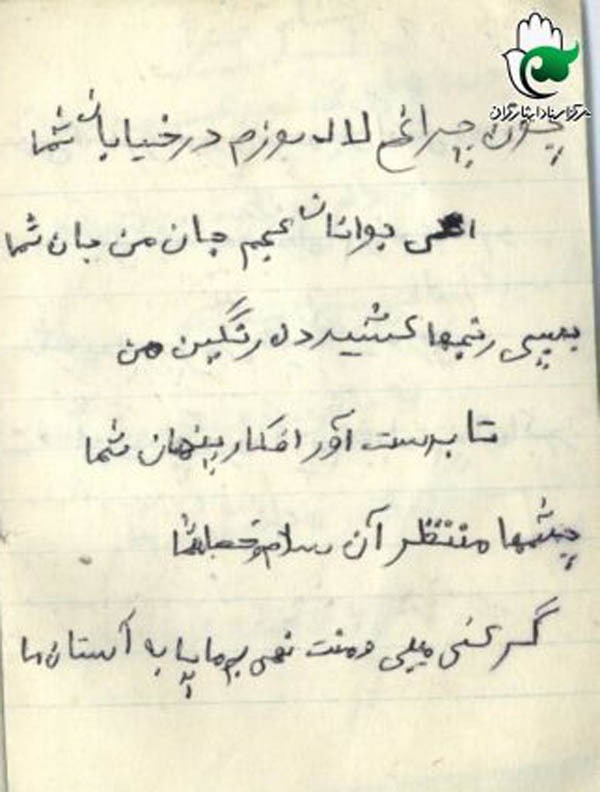 مرکز اسناد ایثارگران
چون چراغ لاله سوزم در خیابان شما
ای جوانان عجم جان من جان شما
بسی رنجها کشید دل رنگین من
تا بدست آورد افکار پنهان شما
چشمها منتظر آن سلام و شما
گر کنی میلی و منت نهی بر ما بیا به آستان ما